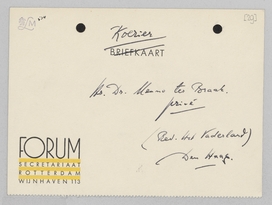 Koerier
BRIEFKAART
Mr. Dr. Menno ter Braak
privé
(Red. Het Vaderland)
Den Haag.
FORUM
SECRETARIAAT
ROTTERDAM
WIJNHAVEN 113